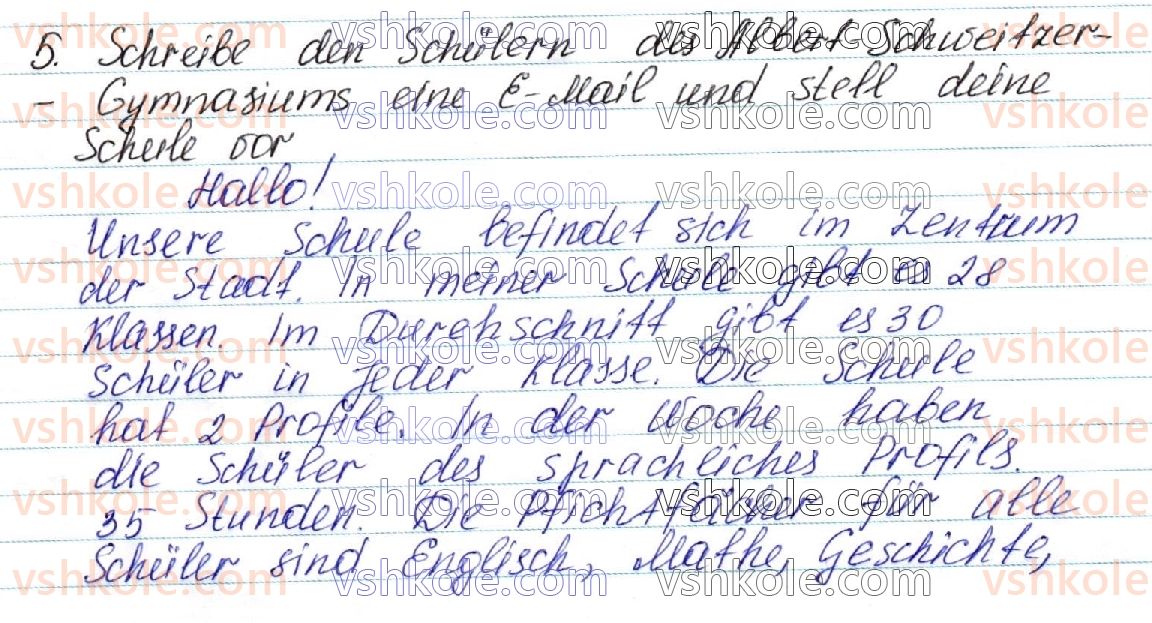 5. Schreibe den Schülern des Albert-Schweitzer-
- Gymnasiums eine E-Mail und stell deine
Schule vor
Hallo!
Unsere Schule befindet sich im Zentrum
der Stadt. In meiner Schule gibt es 28
Klassen. Im Durchschnitt gibt es 30
Schüler in jeder Klasse. Die Schule
hat 2 Profile. In der Woche haben
die Schüler des sprachliches Profils.
35 Stunden. Die Pfichtfächer für alle
Schüler sind Englisch, Mathe, Geschichte,